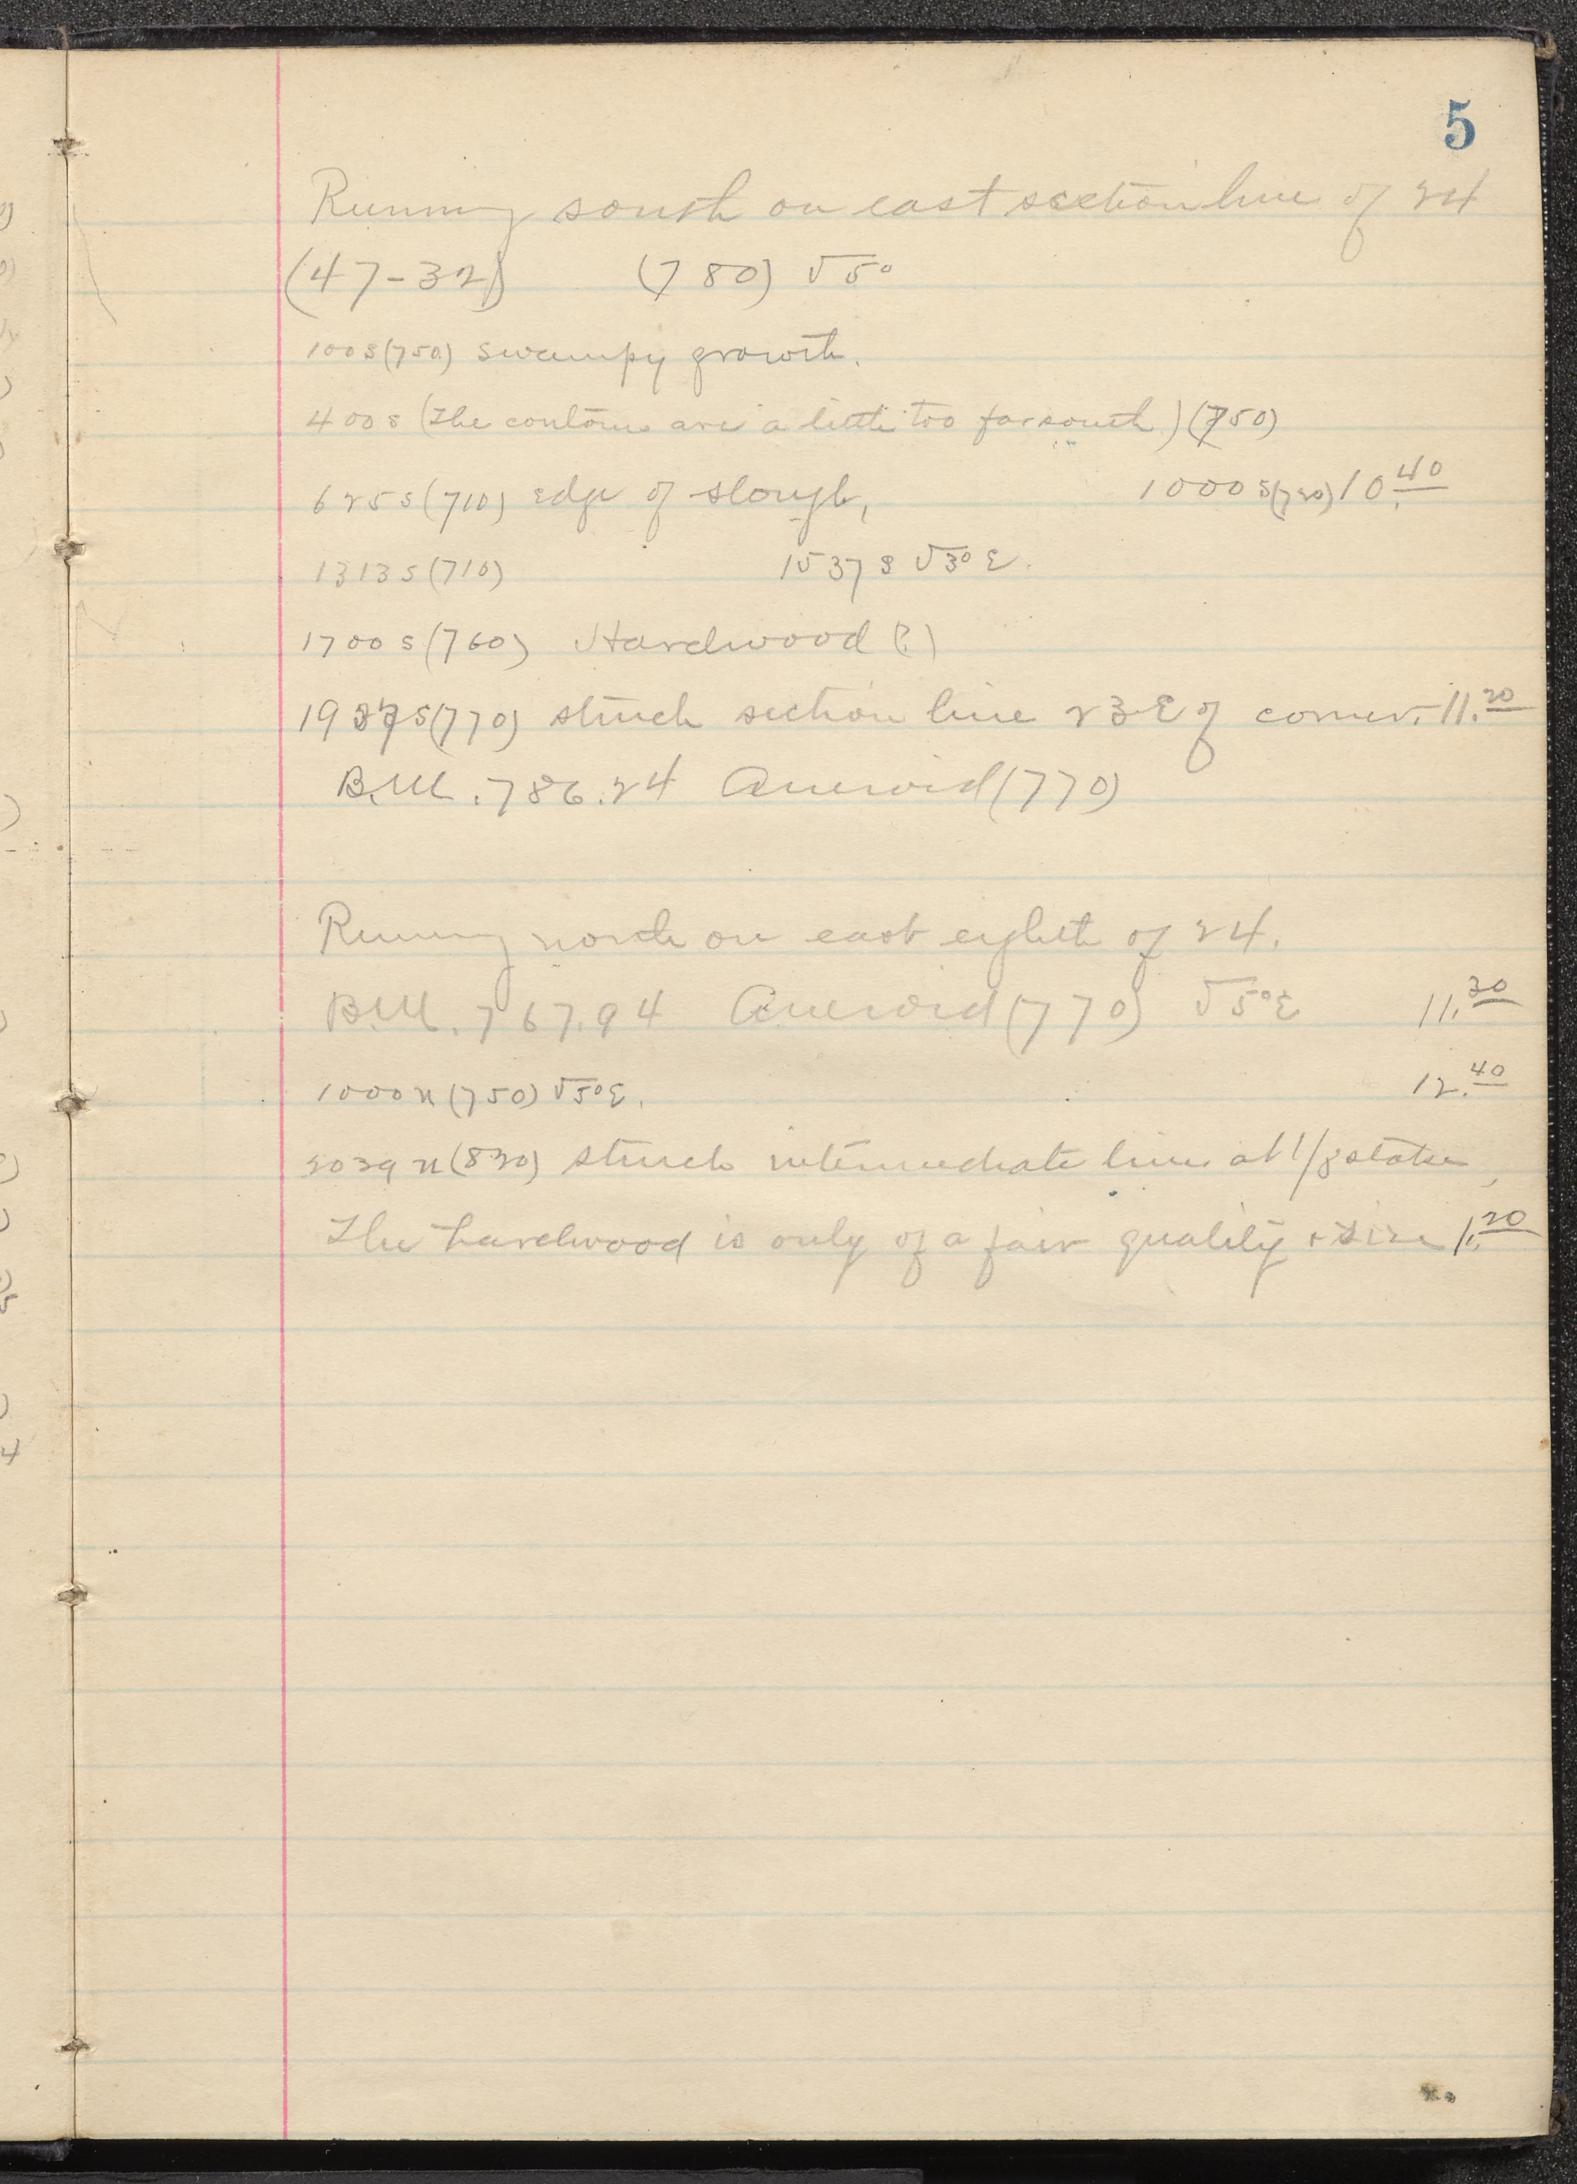 5
Running south on east section line of 24
(47-32) (780) √5°
100 s (750) swampy growth.
400 s (The contours are a little too far south) (750)
625 s (710) edge of slough, 1000 s (720) 10.40
1313 s (710) 1537 s √3° E.
1700 s (760) Hardwood (?)
1937 s (770) struck section line 23 E of corner. 11.20
B.M. 786.24 Aneroid (770)
Running north on east eighth of 24.
B.M. 767.94 Aneroid (770) √5° E 11.30
1000 n (750) √5° E. 12.40
2029 n (820) struck intermediate line at 1/8 stake,
The hardwood is only of a fair quality + size 1.20